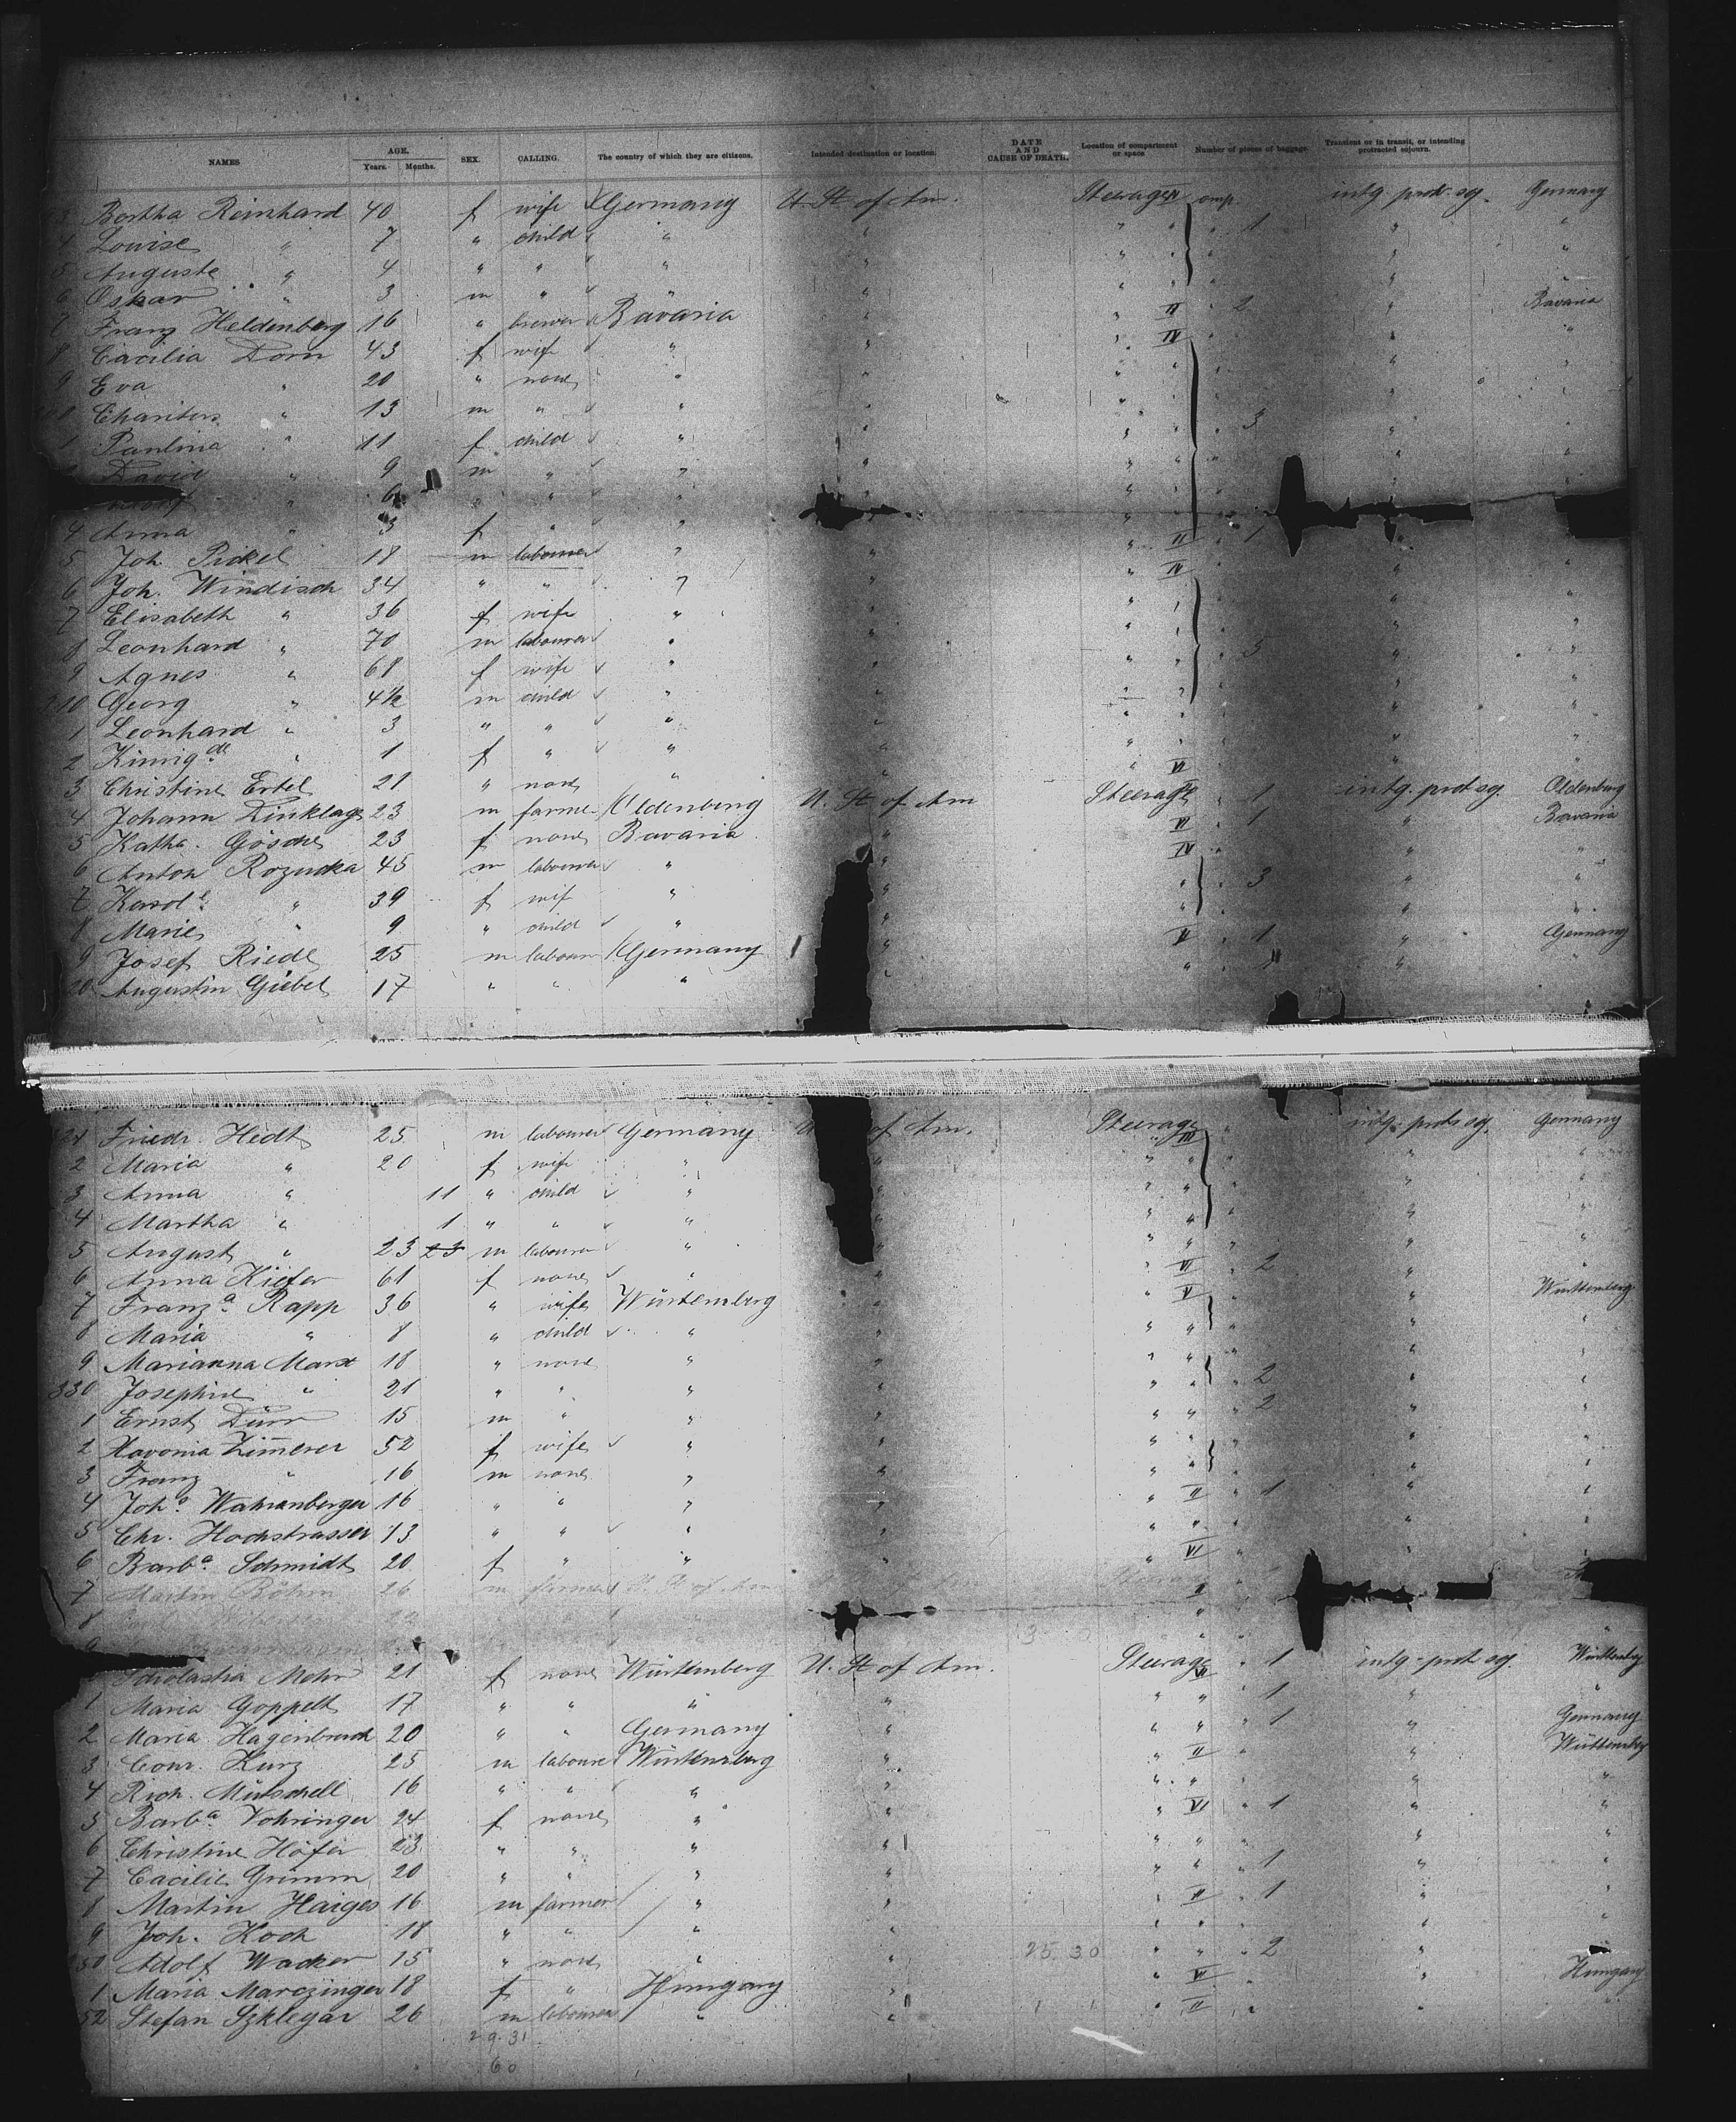 NAMES AGE. Years. Months. SEX. CALLING. The country of which they are citizens. Intended destination or location. DATE AND CAUSE OF DEATH. Location of compartment or space Number of pieces of baggage. Transient or in transit, or intending protracted sojourn.
3 Bertha Reinhard 40 f wife Germany U. St of Am. Steerage IV comp. intg. prot. sg. Germany
4 Louise " 7 " child " " " " " 1 " "
5 Auguste " 4 " " " " " " " "
6 Oskar " 3 m " " " " " " "
7 Franz Heldenberg 16 " brewer Bavaria " " II " 2 " Bavaria
8 Cäcilia Dorn 43 f wife " " " IV " "
9 Eva " 20 " none " " " " " "
Chariton " 13 m " " " " " " "
1 Paulina " 11 f child " " " " " 3 " "
David " 9 m " " " " " " "
" 6 " " " " " "
4 Anna " 3 f " " " " "
5 Joh. Pickel 18 m labourer " " " II " 1 "
6 Joh. Windisch 34 " " " " " IV " "
7 Elisabeth " 36 f wife " " " " " "
8 Leonhard " 70 m labourer " " " " " "
9 Agnes " 68 f wife " " " " " 3 " "
310 Georg " 4½ m child " " " " " "
1 Leonhard " 3 " " " " " " " "
2 Kunig.de " 1 f " " " " " " "
3 Christine Ertel 21 " none " " " VI " "
4 Johann Dinklage 23 m farmer Oldenburg U. St of Am Steerage " 1 intg. prot sg. Oldenburg
5 Katha. Gösche 23 f none Bavaria " " VI " 1 " Bavaria
6 Anton Rozucka 45 m labourer " " " IV " "
7 Karol.e " 39 f wife " " " " 3 " "
8 Marie " 9 " child " " " " " "
9 Josef Riedl 25 m labourer Germany " " II " 1 " Germany
20 Augustin Giebel 17 " " " " " " " "
321 Friedr. Hedt 25 m labourer Germany U of Am. Steerage III " intg. prot. sg. Germany
2 Maria " 20 f wife " " " " " "
3 Anna " 11 " child " " " " " " "
4 Martha " 1 " " " " " " " " "
5 August " 23 23 m labourer " " " " " "
6 Anna Kiefer 61 f none " " " VI " 2 " "
7 Franz.a Rapp 36 " wife Würtemberg " " IV " " Würtemberg
8 Maria " 8 " child " " " " " "
9 Marianna Marx 18 " none " " " " " "
330 Josephine " 21 " " " " " " " 2 " "
1 Ernst Dürr 15 m " " " " " " 2 " "
2 Xavonia Zimerer 52 f wife " " " " " "
3 Franz " 16 m none " " " " " "
4 Joh.s Wahrenberger 16 " " " " " II " 1 " "
5 Chr. Hochstrasser 13 " " " " " " " " "
6 Barb.a Schmidt 20 f " " " " VI " " "
7 Martin Böhm 26 m farmer U. St of Am Steerage II
8
9
Scholastia Mohr 21 f none Würtemberg U. St of Am. Steerage VI " 1 intg. prot sg. Württemberg
1 Maria Goppelt 17 " " " " " " " 1 " "
2 Maria Hagenbruch 20 " " Germany " " " " 1 " Germany
3 Conr. Kurz 25 m labourer Würtemberg " " II " " Württemberg
4 Rich. Mutschell 16 " " " " " " " "
5 Barb.a Vohringer 24 f none " " " VI " 1 " "
6 Christine Höfer 23 " " " " " " " "
7 Cäcilie Grimm 20 " " " " " " " 1 " "
8 Martin Haiges 16 m farmer " " " II " 1 " "
9 Joh. Koch 18 " " " " " " " "
350 Adolf Wacker 15 " none " " 25.30 " " " 2 "
1 Maria Marczinger 18 f " Hungary " " VI " " Hungary
52 Stefan Szklegar 26 m labourer " " " II " " "
29.31
60